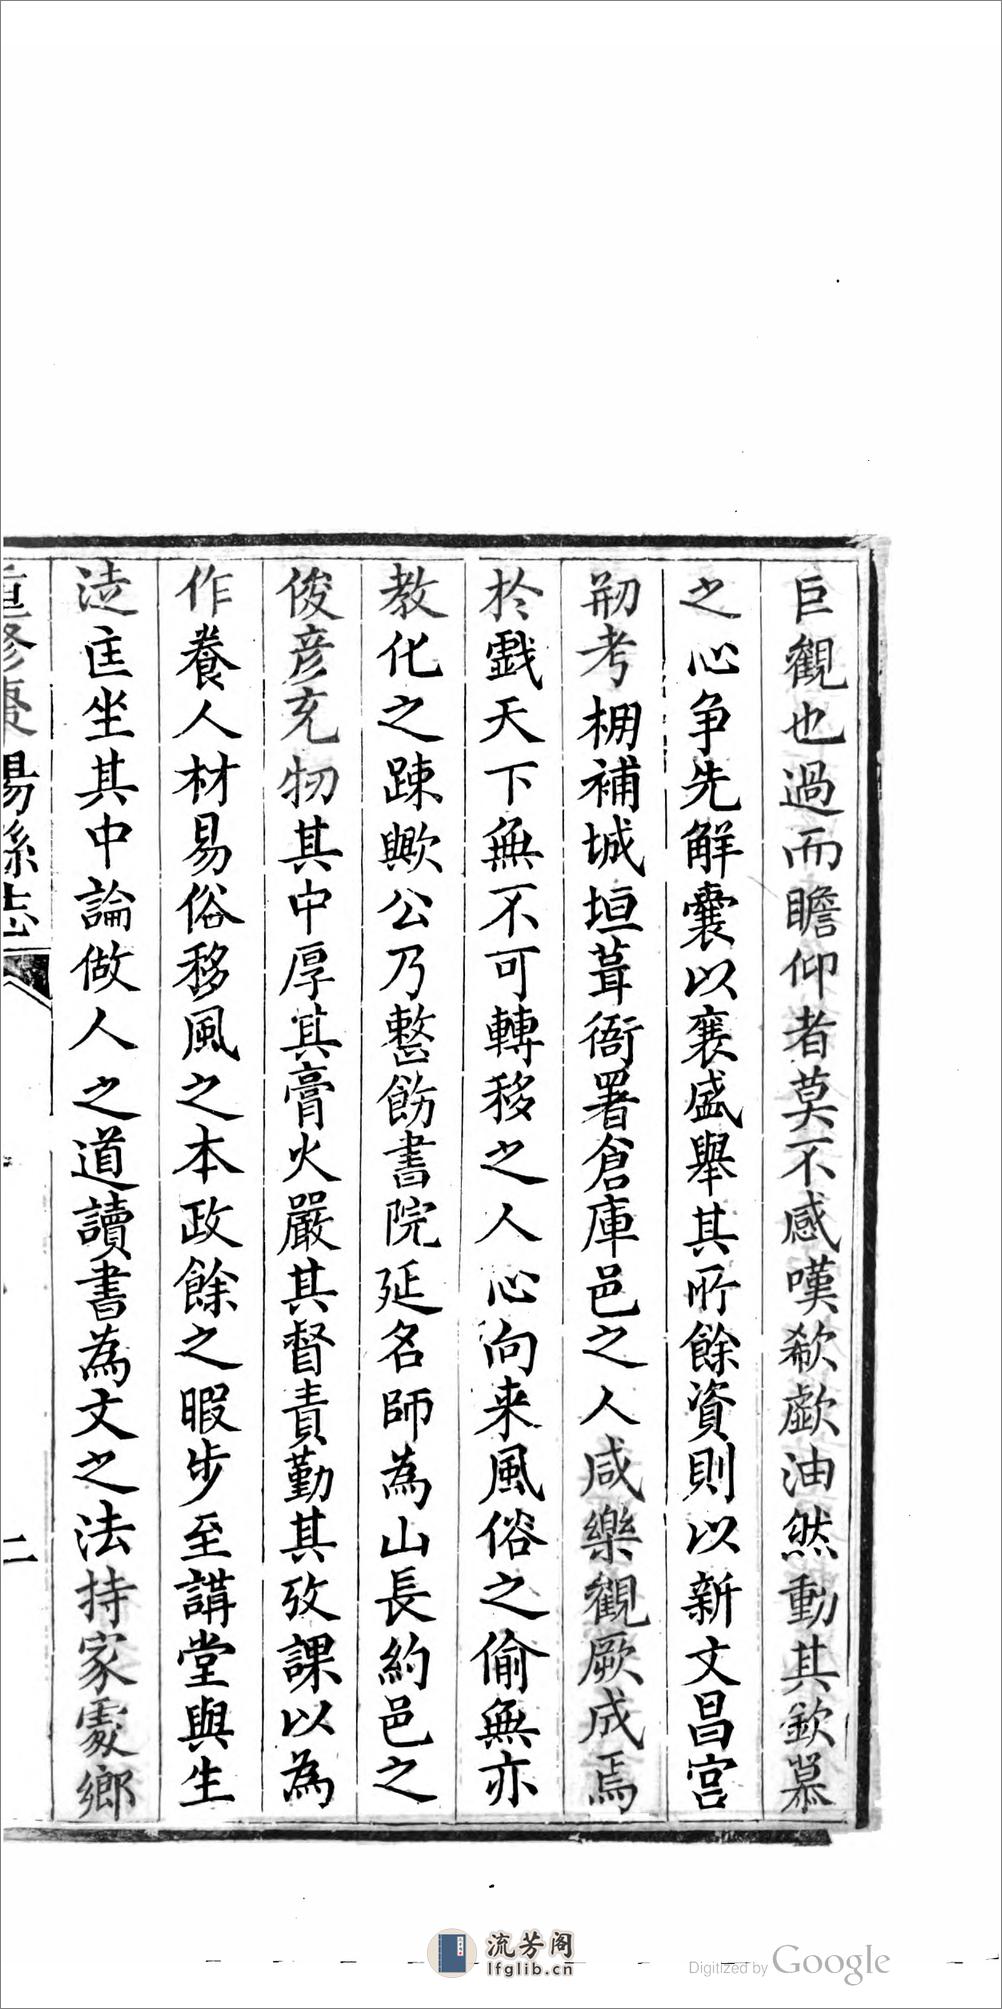 巨觀也過而瞻仰者莫不感嘆欷歔油然動其欽慕
之心争先解囊以襄盛舉其所餘資則以新文昌宫
剏考棚補城垣葺衙署倉庫邑之人咸樂觀厥成焉
於戲天下無不可轉移之人心向来風俗之偷無亦
教化之踈歟公乃整飭書院延名師為山長約邑之
俊彦充牣其中厚其膏火嚴其督責勤其攷課以為
作養人材易俗移風之本政餘之暇步至講堂與生
徒匡坐其中論做人之道讀書為文之法持家處鄉
重修棗陽縣志
二
流芳阁
lfglib.cn
Digitized by Google